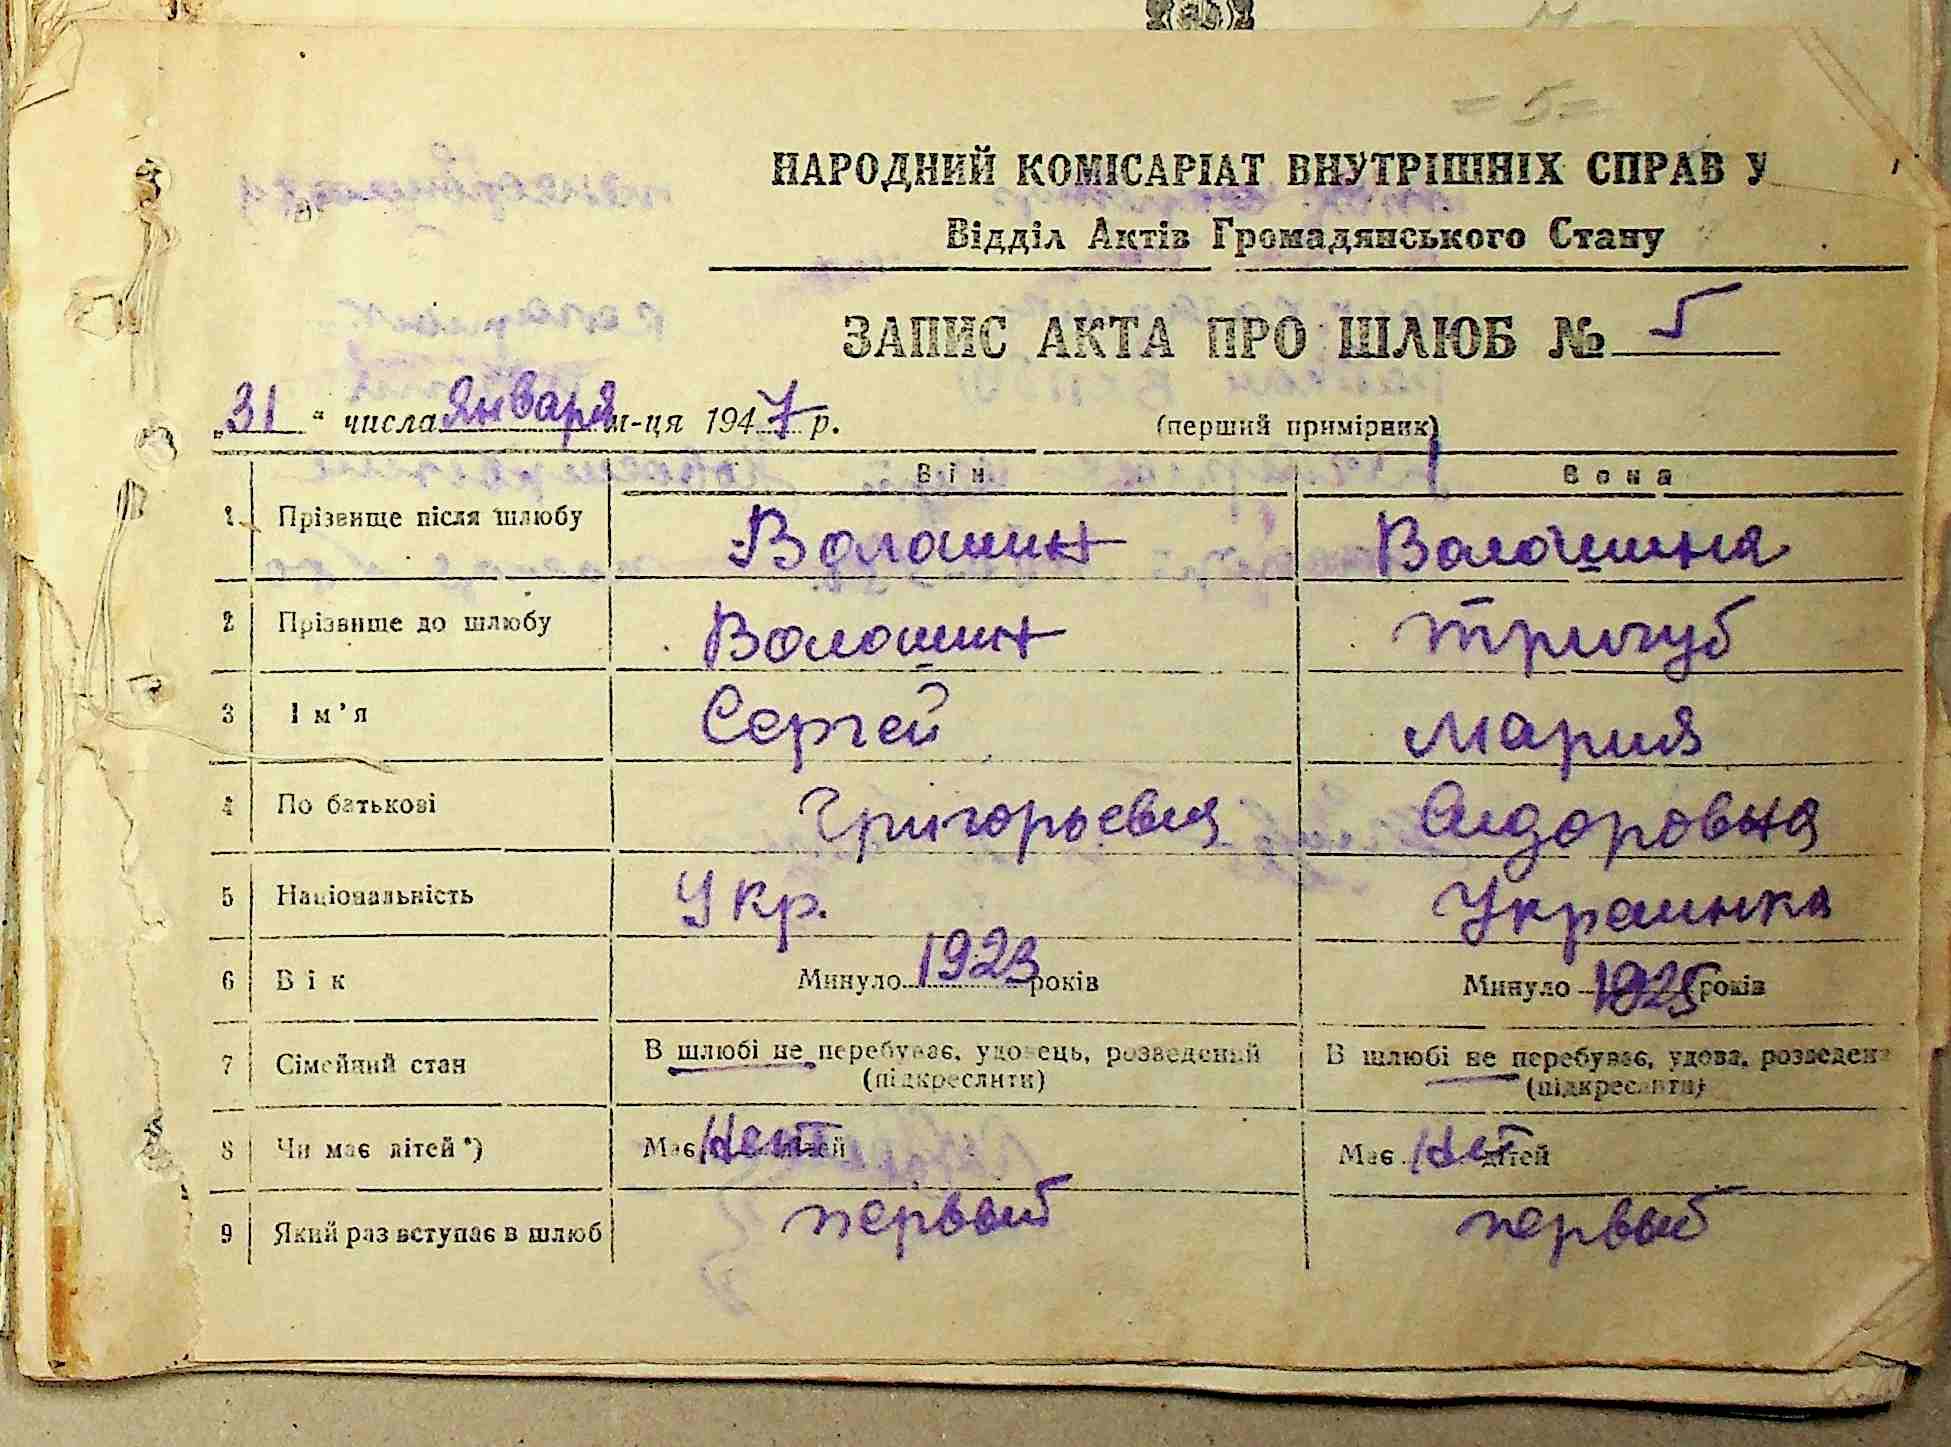 - 5 -
НАРОДНИЙ КОМІСАРІАТ ВНУТРІШНІХ СПРАВ У
Відділ Актів Громадянського Стану
ЗАПИС АКТА ПРО ШЛЮБ № 5
„31“ числа января м-ця 1947 р. (перший примірник)
Він Вона
1 Прізвище після шлюбу Волошин Волошина
2 Прізвище до шлюбу Волошин Тригуб
3 Ім’я Сергей Мария
4 По батькові Григорьевич Сидоровна
5 Національність Укр. Украинка
6 Вік Минуло 1923 років Минуло 1925 років
7 Сімейний стан В шлюбі не перебуває, удовець, розведений В шлюбі не перебуває, удова, розведена
(підкреслити) (підкреслити)
8 Чи має дітей*) Має Нет дітей Має Нет дітей
9 Який раз вступає в шлюб первый первый